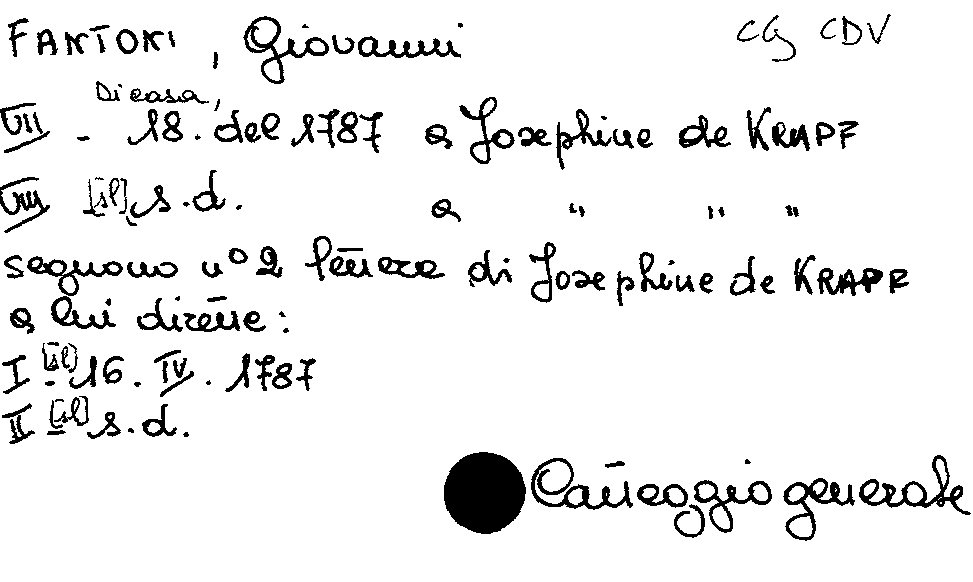 FANTONI, Giovanni CG CDV
Di casa,
VII - 18. del 1787 a Josephine de KRAPF
VIII [sl] s.d. a " " "
seguono n° 2 lettere di Josephine de KRAPF
a lui dirette:
I [sl] 16. IV. 1787
II [sl] s.d.
Carteggio generale